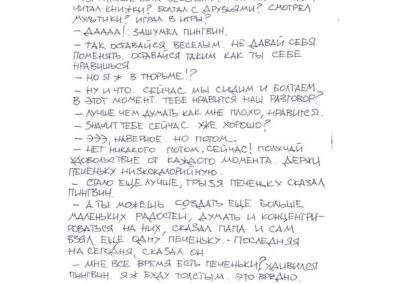 ЧИТАЛ КНИЖКИ? БОЛТАЛ С ДРУЗЬЯМИ? СМОТРЕЛ
МУЛЬТИКИ? ИГРАЛ В ИГРЫ?
- ДАААА!: ЗАШУМЕЛ ПИНГВИН.
- ТАК ОСТАВАЙСЯ ВЕСЕЛЫМ. НЕ ДАВАЙ СЕБЯ
ПОМЕНЯТЬ. ОСТАВАЙСЯ ТАКИМ КАК ТЫ СЕБЕ
НРАВИШЬСЯ
- НО Я Ж В ТЮРЬМЕ!?
- НУ И ЧТО. СЕЙЧАС МЫ СИДИМ И БОЛТАЕМ
В ЭТОТ МОМЕНТ. ТЕБЕ НРАВИТСЯ НАШ РАЗГОВОР?
- ЛУЧШЕ ЧЕМ ДУМАТЬ КАК МНЕ ПЛОХО, НРАВИТСЯ.
- ЗНАЧИТ ТЕБЕ СЕЙЧАС УЖЕ ХОРОШО?
- ЭЭЭ, НАВЕРНОЕ. НО ПОТОМ...
- НЕТ НИКАКОГО ПОТОМ. СЕЙЧАС! ПОЛУЧАЙ
УДОВОЛЬСТВИЕ ОТ КАЖДОГО МОМЕНТА. ДЕРЖИ
ПЕЧЕНЬКУ НИЗКОКАЛОРИЙНУЮ.
- СТАЛО ЕЩЕ ЛУЧШЕ, ГРЫЗЯ ПЕЧЕНЬКУ СКАЗАЛ
ПИНГВИН.
- А ТЫ МОЖЕШЬ СОЗДАТЬ ЕЩЕ БОЛЬШЕ
МАЛЕНЬКИХ РАДОСТЕЙ, ДУМАТЬ И КОНЦЕНТРИ-
РОВАТЬСЯ НА НИХ, СКАЗАЛ ПАПА И САМ
ВЗЯЛ ЕЩЕ ОДНУ ПЕЧЕНЬКУ. - ПОСЛЕДНЯЯ
НА СЕГОДНЯ, СКАЗАЛ ОН
- МНЕ ВСЕ ВРЕМЯ ЕСТЬ ПЕЧЕНЬКИ? УДИВИЛСЯ
ПИНГВИН. Я Ж БУДУ ТОЛСТЫМ. ЭТО ВРЕДНО.